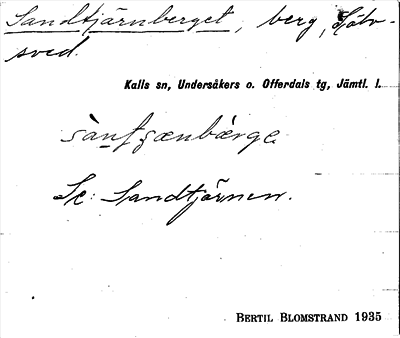 Sandtjärnberget, berg, Lötv-
sved.
Kalls sn, Undersåkers o. Offerdals tg, Jämtl. l.
Se: Sandtjärnen.
BERTIL BLOMSTRAND 1935